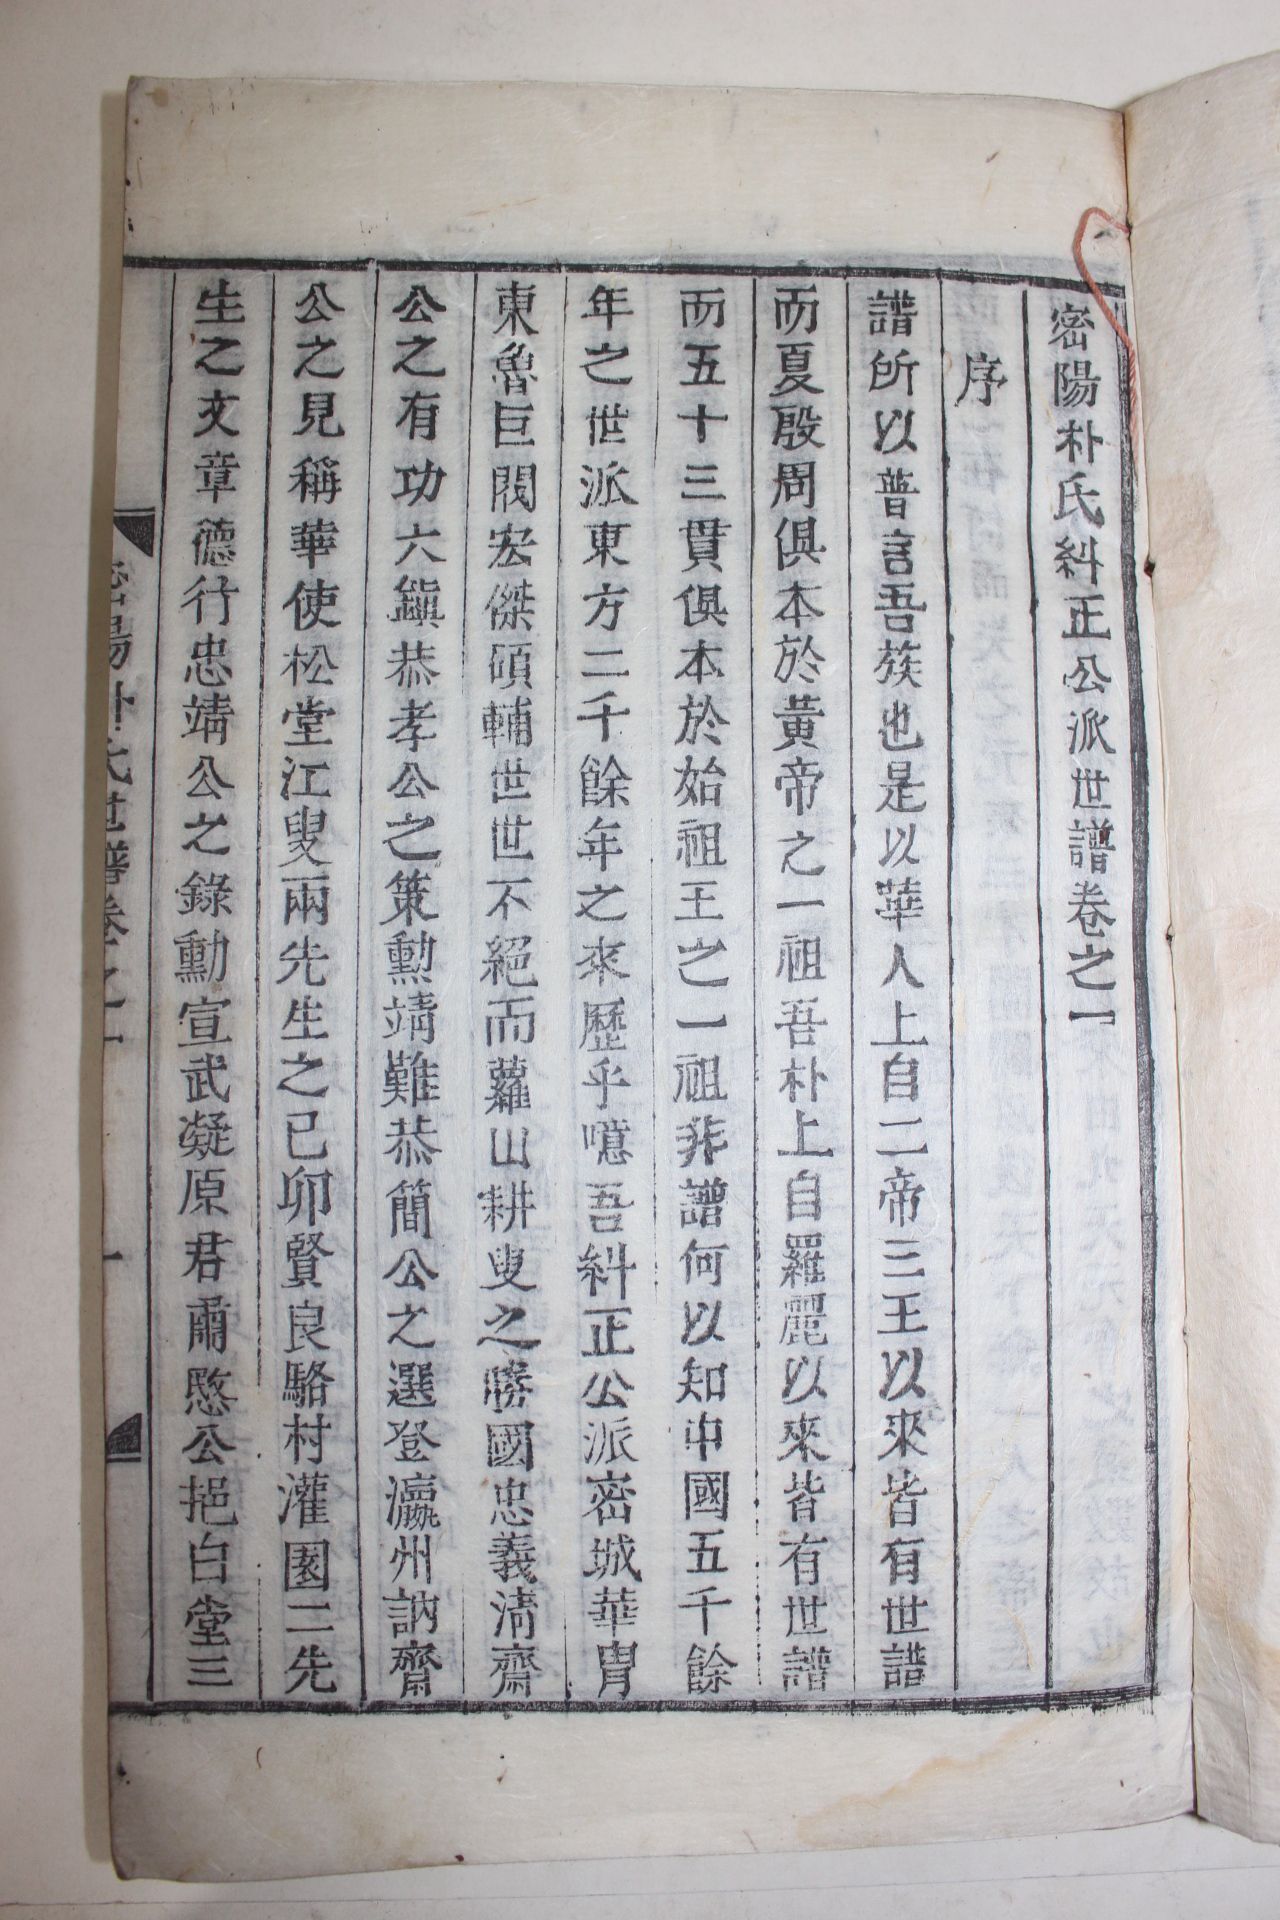 密陽朴氏糾正公派世譜卷之一
序
譜所以普言吾族也是以華人上自二帝三王以來皆有世譜
而夏殷周俱本於黃帝之一祖吾朴上自羅麗以來皆有世譜
而五十三貫俱本於始祖王之一祖非譜何以知中國五千餘
年之世派東方二千餘年之來歷乎噫吾糾正公派密城華胄
東魯巨閥宏傑碩輔世世不絕而蘿山耕叟之勝國忠義淸齋
公之有功六鎭恭孝公之策勳靖難恭簡公之選登瀛州訥齋
公之見稱華使松堂江叟兩先生之己卯賢良駱村灌園二先
生之文章德行忠靖公之錄勳宣武凝原君肅愍公挹白堂三
密陽朴氏世譜卷之一
一